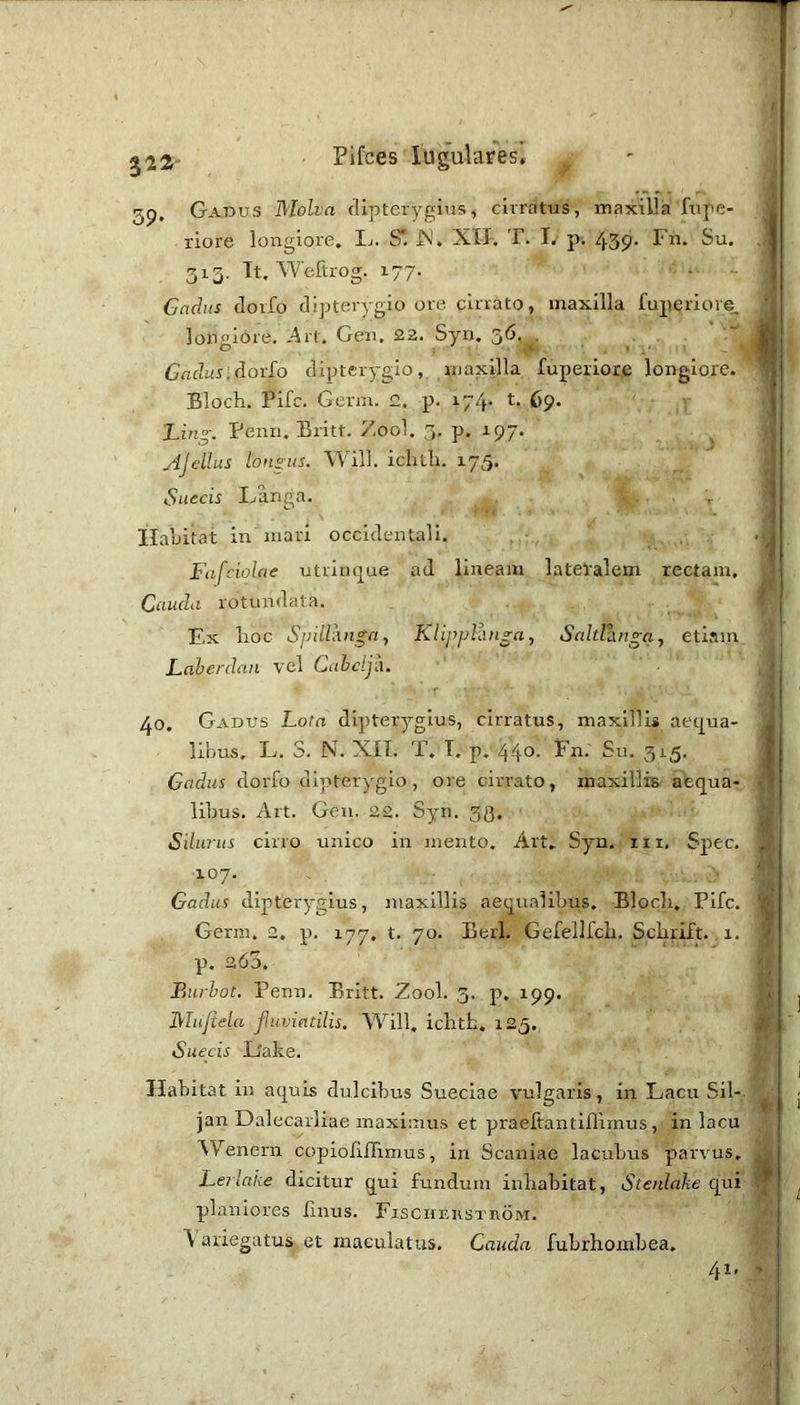 322 Pifces Iugulares.
39. GADUS Molva dipterygius, cirratus, maxilla fupe-
riore longiore. L. S. N. XII. T. I. p. 439. Fn. Su.
313. It. Weftrog. 177.
Gadus dorfo dipterygio ore cirrato, maxilla fuperiore
longiore. Art. Gen. 22. Syn. 36.
Gadus dorfo dipterygio, maxilla fuperiore longiore.
Bloch. Pifc. Germ. 2. p. 174. t. 69.
Ling. Penn. Britt. Zool. 3. p. 197.
Afellus longus. Will. ichth. 175.
Suecis Långa.
Habitat in mari occidentali.
Fafciolae utrinque ad lineam lateralem rectam.
Cauda rotundata.
Ex hoc Spillånga, Klipplånga, Saltlånga, etiam
Laberdan vel Cabeljå.
40. GADUS Lota dipterygius, cirratus, maxillis aequa-
libus. L. S. N. XII. T. I. p. 440. Fn. Su. 315.
Gadus dorfo dipterygio, ore cirrato, maxillis aequa-
libus. Art. Gen. 22. Syn. 38.
Silurus cirro unico in mento. Art. Syn. 111. Spec.
107.
Gadus dipterygius, maxillis aequalibus. Bloch. Pifc.
Germ. 2. p. 177. t. 70. Berl. Gefellfch. Schrift. 1.
p. 263.
Burbot. Penn. Britt. Zool. 3. p. 199.
Muftela fluviatilis. Will. ichth. 125.
Suecis Lake.
Habitat in aquis dulcibus Sueciae vulgaris, in Lacu Sil-
jan Dalecarliae maximus et praeftantiffimus, in lacu
Wenern copiofiffimus, in Scaniae lacubus parvus.
Lerlake dicitur qui fundum inhabitat, Stenlake qui
planiores finus. FISCHERSTRÖM.
Variegatus et maculatus. Cauda fubrhombea.
41.